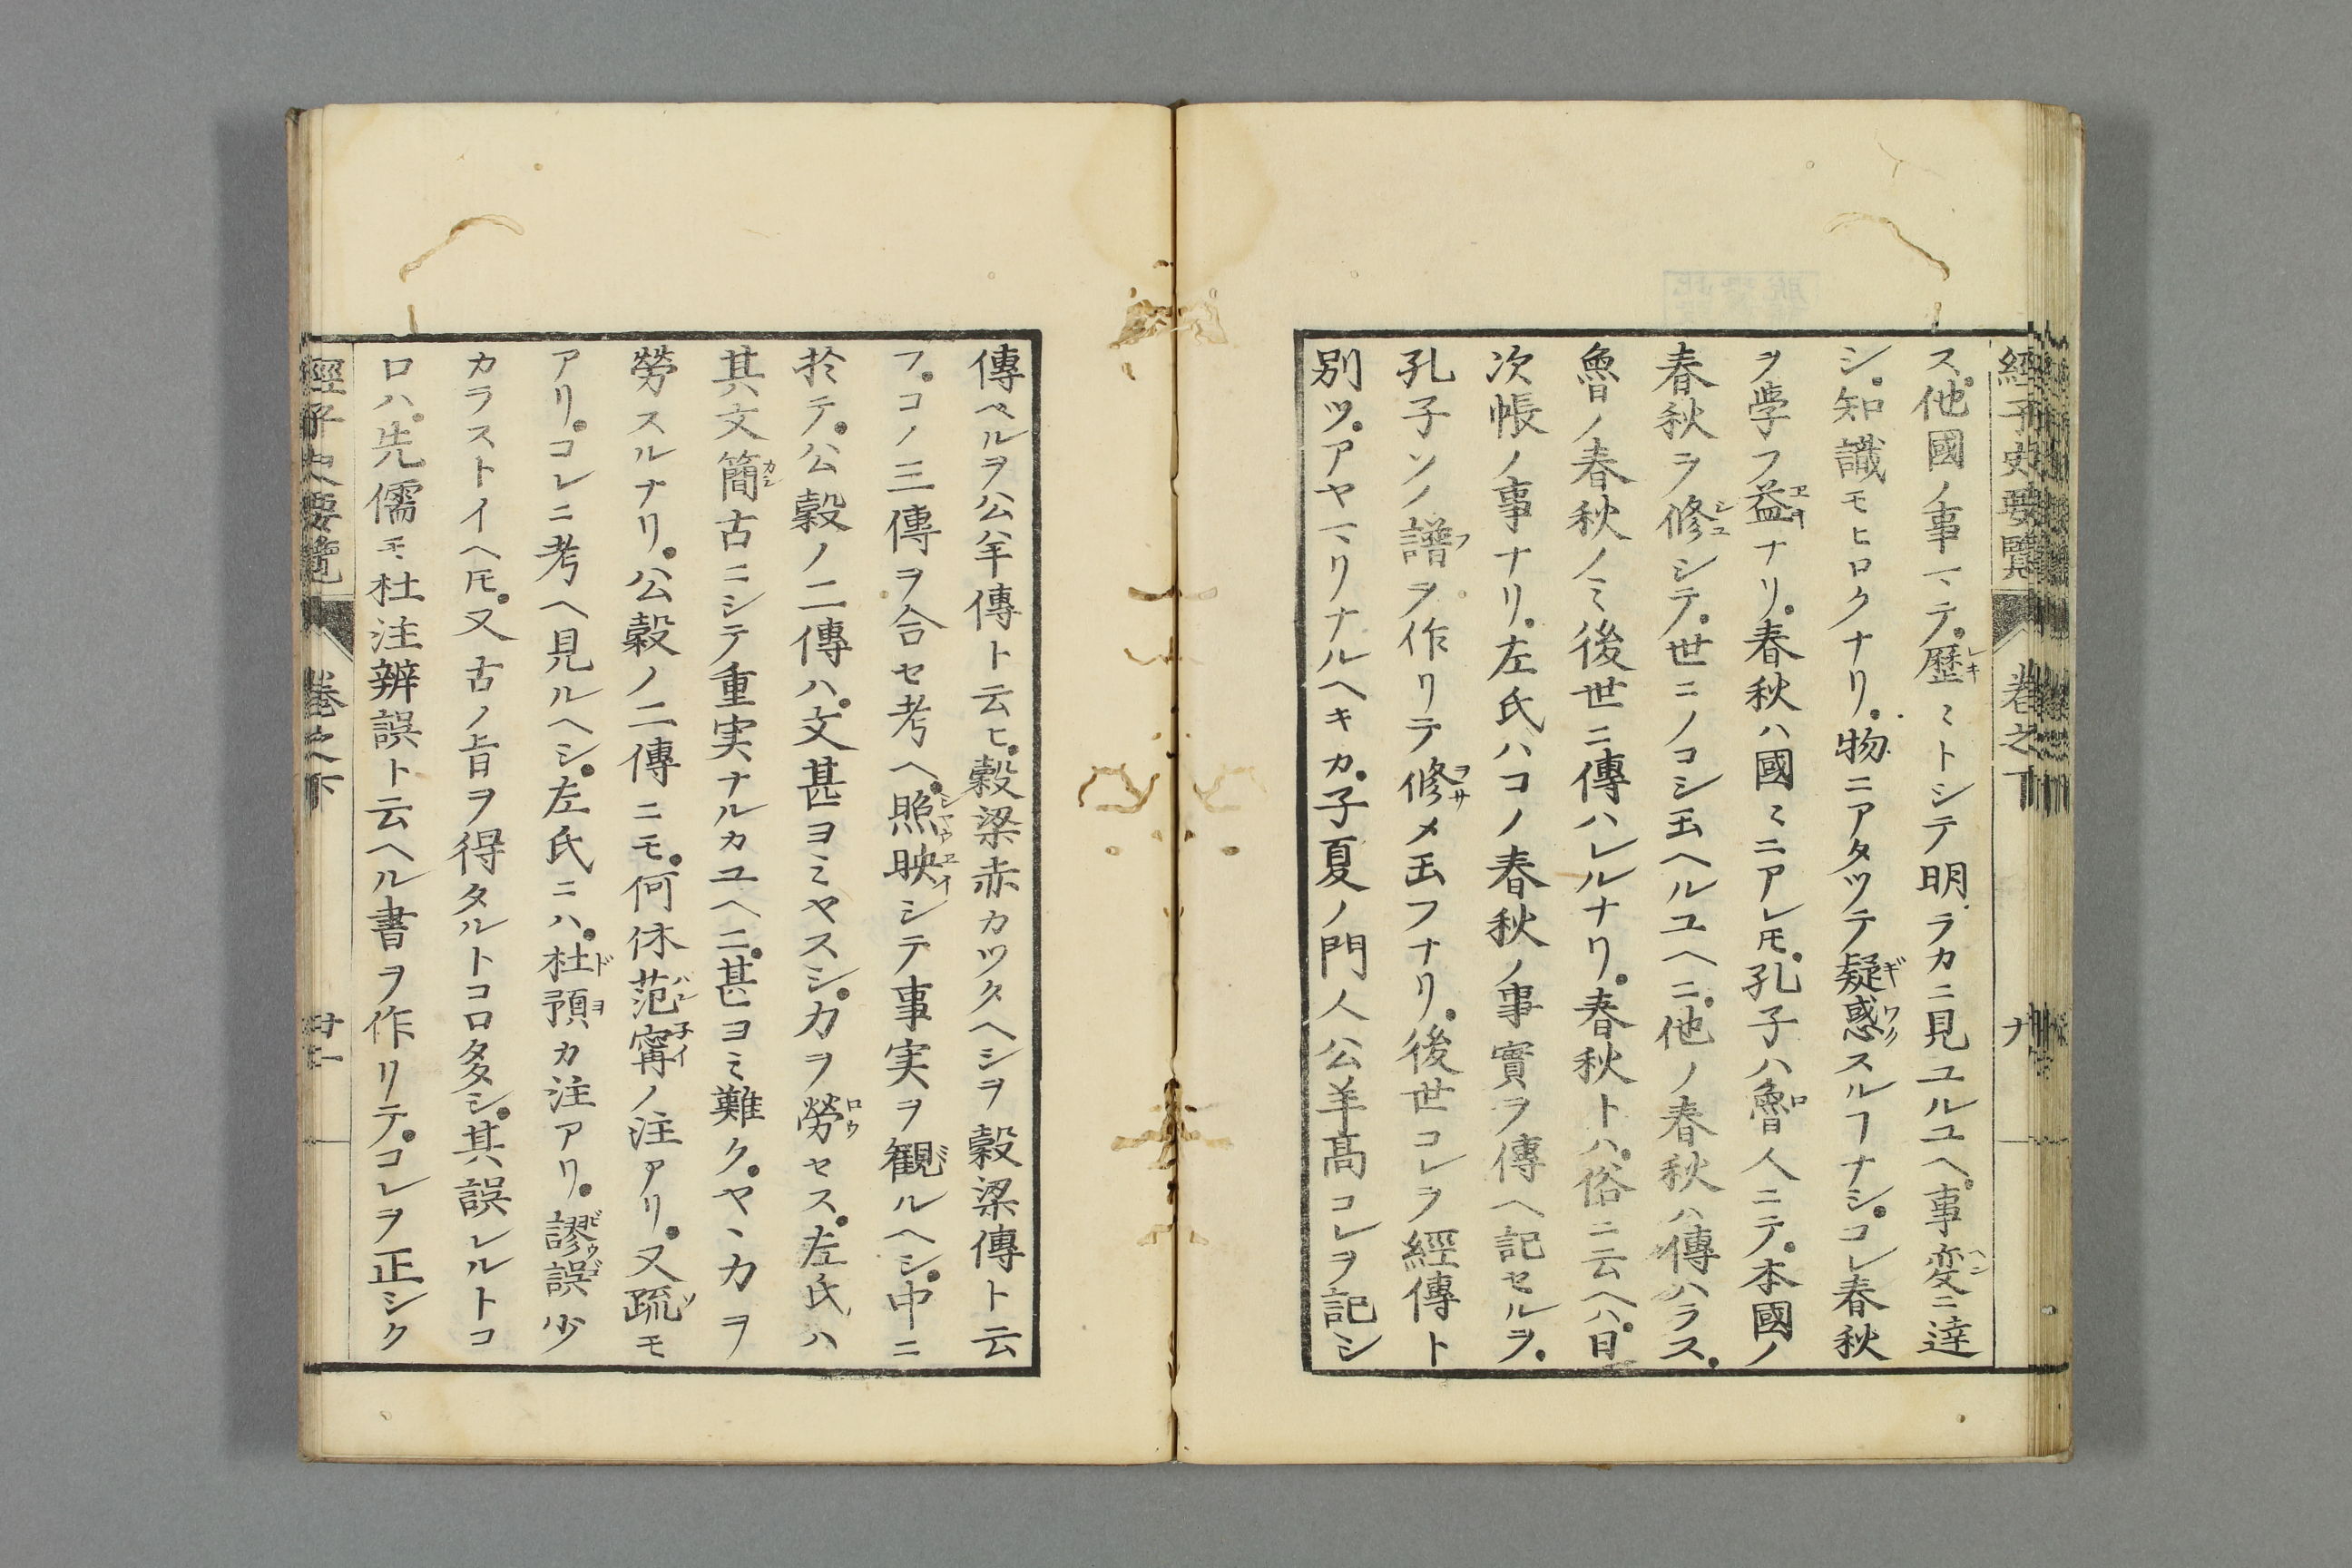 經子史要覽 卷之下
ス。他國ノ事マテ。歷レキミトシテ明ラカニ見ユルユヘ。事変ヘンニ達
シ。知識モヒロクナリ。物ニアタツテ疑ギ惑ワクスルヿナシ。コレ春秋
ヲ学フ益エキナリ。春秋ハ國ミニアレ𪜈。孔子ハ魯ロ人ニテ。本國ノ
春秋ヲ修シユシテ。世ニノコシ玉ヘルユヘニ。他ノ春秋ハ傳ハラス。
魯ノ春秋ノミ後世ニ傳ハレルナリ。春秋トハ。俗ニ云ヘハ。日
次帳ノ事ナリ。左氏ハコノ春秋ノ事實ヲ傳ヘ記セルヲ。
孔子ソノ譜フヲ作リテ修ヲサメ玉フナリ。後世コレヲ經傳ト
別ツ。アヤマリナルヘキカ。子夏ノ門人公羊高コレヲ記シ
傳ベルヲ公羊傳ト云ヒ。穀梁赤カツタヘシヲ穀梁傳ト云
フ。コノ三傳ヲ合セ考ヘ。照シヤウ映エイシテ事実ヲ観ミルヘシ。中ニ
於テ。公穀ノ二傳ハ。文甚ヨミヤスシ。力ヲ勞ロウセス。左氏ハ
其文簡カン古ニシテ重実ナルカユヘニ。甚ヨミ難ク。ヤヽカヲ
勞スルナリ。公穀ノ二傳ニモ。何休范ハン甯ネイノ注アリ。又疏ソモ
アリ。コレニ考ヘ見ルヘシ。左氏ニハ。杜ド預ヨカ注アリ。謬ビウ誤ゴ少
カラストイヘ𪜈。又古ノ旨ヲ得タルトコロ多シ。其誤レルトコ
ロハ。先儒モ杜注辨誤ト云ヘル書ヲ作リテ。コレヲ正シク
經子史要覽 卷之下 廿一